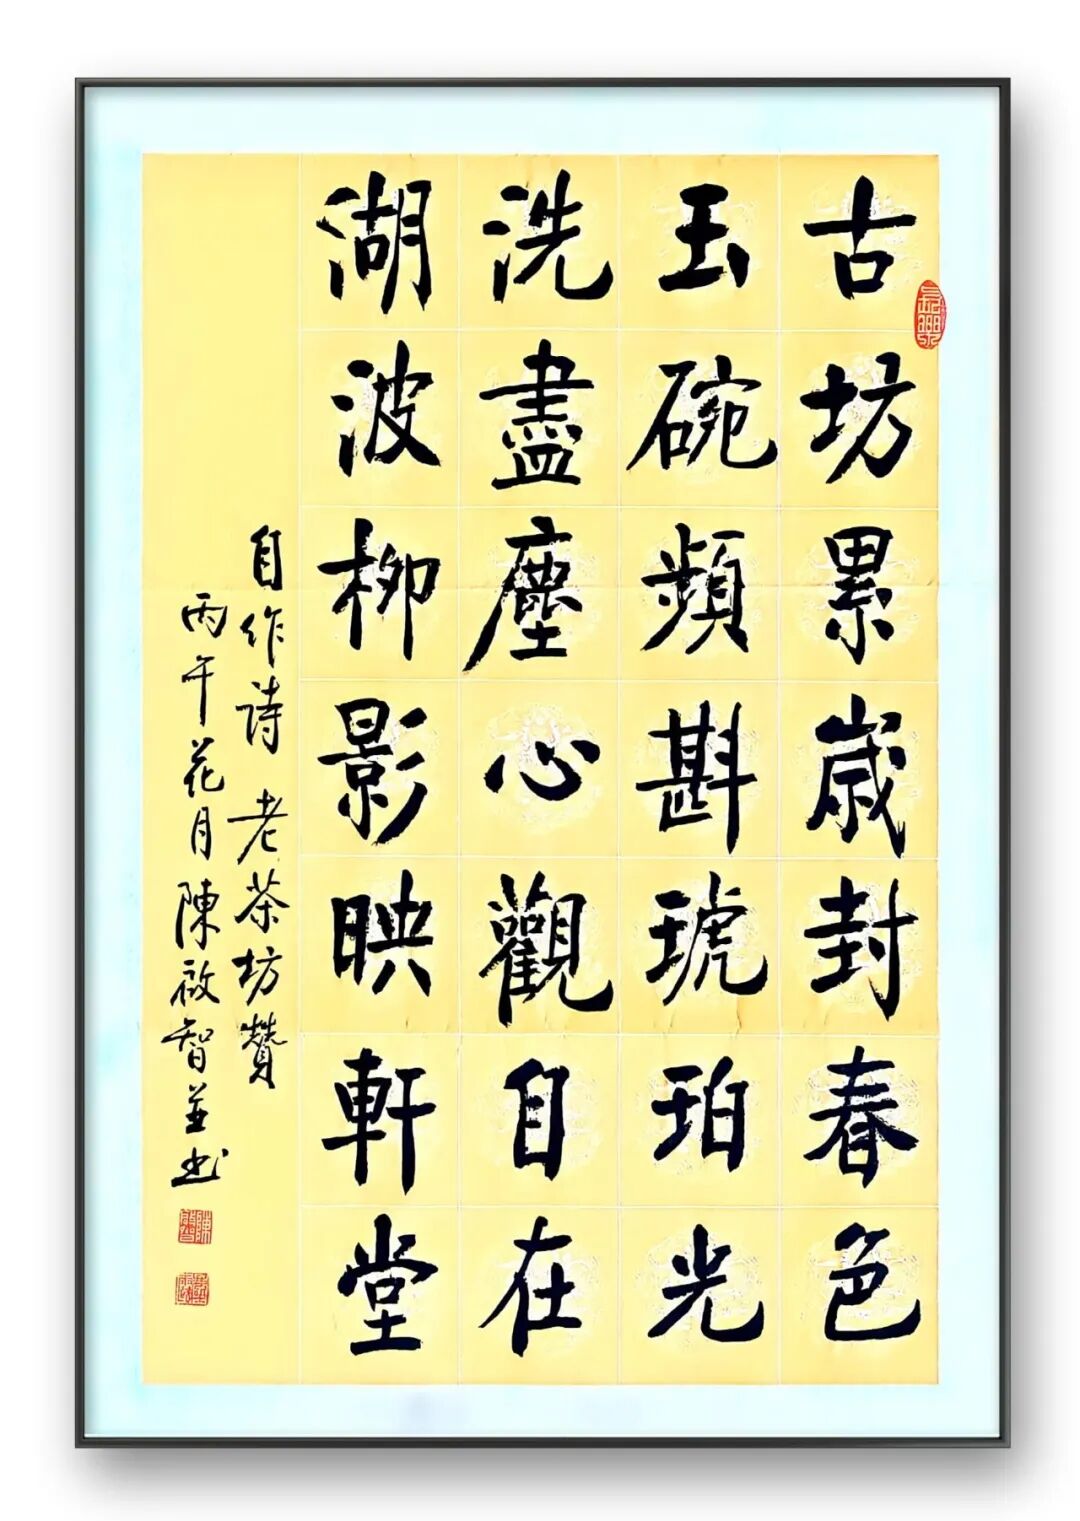 古坊累歲封春色
玉碗頻斟琥珀光
洗盡塵心觀自在
湖波柳影映軒堂
自作詩 老茶坊贊
丙午花月陳啟智並书